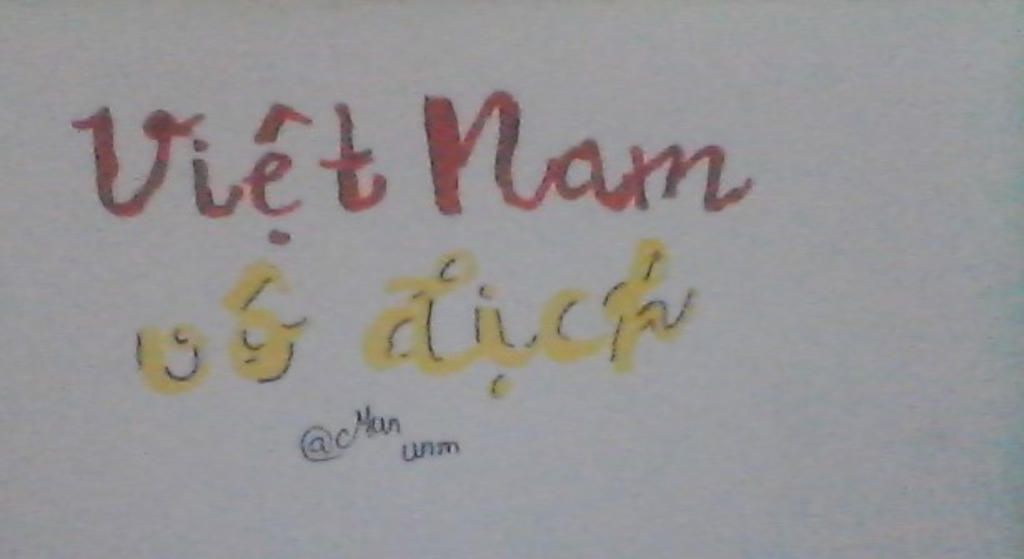 Việt Nam
vô địch
@Man
unm